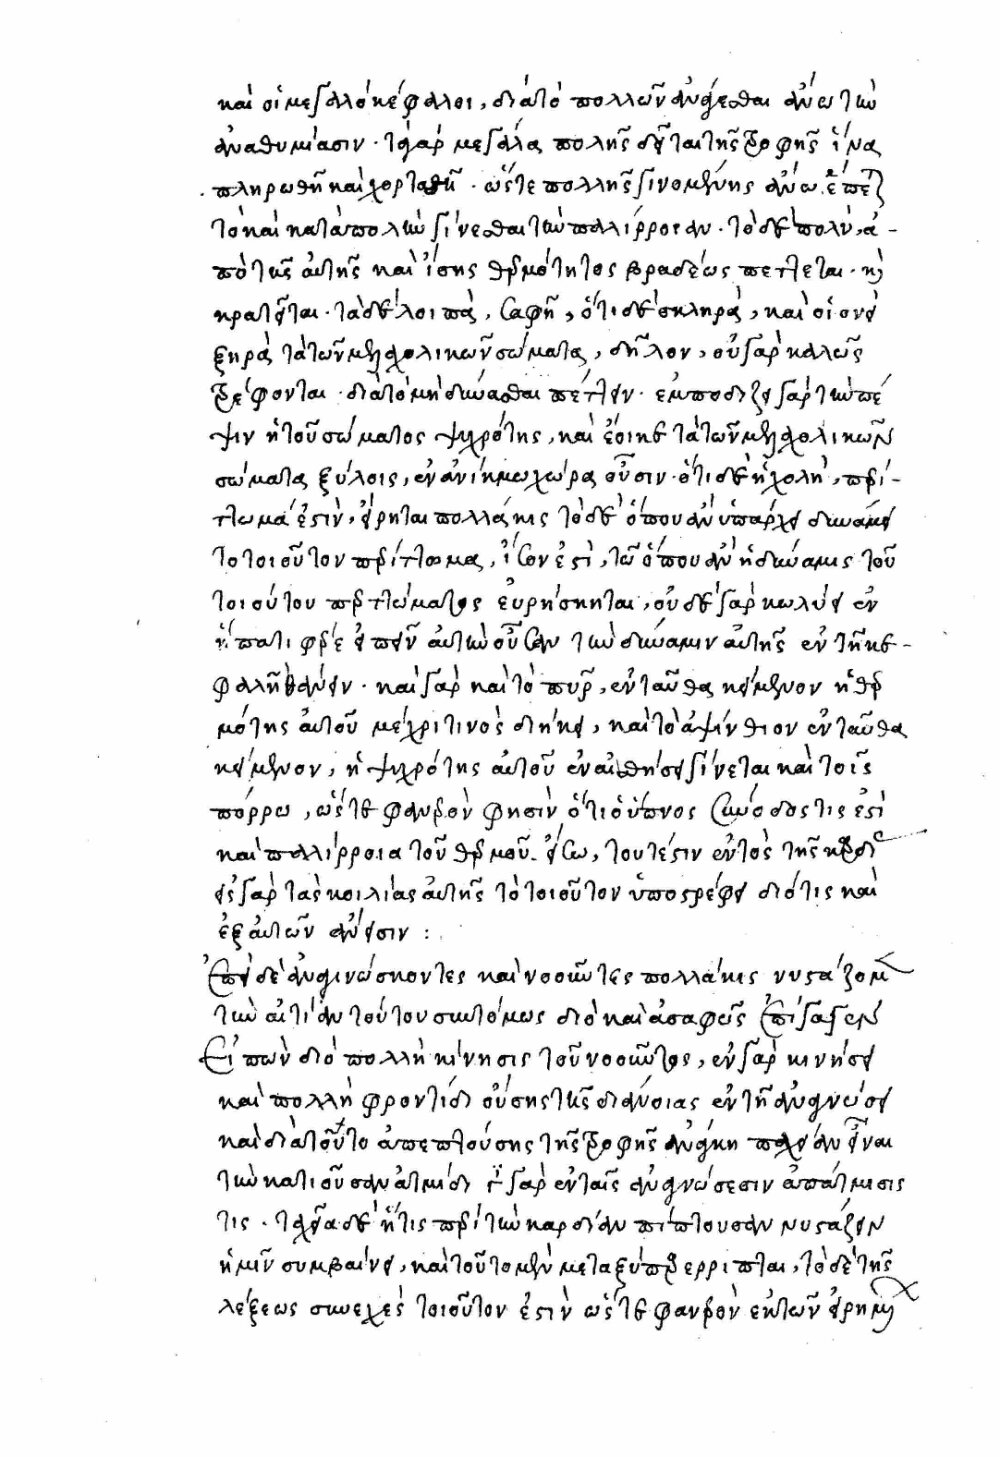 καὶ οἱ μεγαλοκέφαλοι, διὰ τὸ πολλὴν ἀνάγεσθαι ἄνω τὴν
ἀναθυμίασιν· τὰ γὰρ μεγάλα πολλῆς δεῖται τῆς τροφῆς ἵνα
πληρωθῆ καὶ χορτασθῆ· ὥστε πολλῆς γινομένης ἄνω
τὸ καὶ κατὰ πολὺ γίνεσθαι τὴν παλίρροιαν· τὸ δὲ πολὺ, ἀ-
πὸ τῆς αὐτῆς καὶ ἴσης θερμότητος βραδέως πέττεται· καὶ
κρατεῖται· τὰ δὲ λοιπὰ, σαφῆ, ὅτι δὲ σκληρὰ, καὶ οἱονεὶ
ξηρὰ τὰ τῶν μελαγχολικῶν σώματα, δῆλον, οὐ γὰρ καλῶς
τρέφονται· διὰ τὸ μὴ δύνασθαι πέττειν· ἐμποδίζει γὰρ τὴν πέ
ψιν ἡ τοῦ σώματος ψυχρότης, καὶ ἔοικε τὰ τῶν μελαγχολικῶν
σώματα ξύλοις, ἐν ἀνίκμω χώρα οὖσιν· ὅτι δὲ ἡ χολὴ, περί-
τωμά ἐστιν, εἴρηται πολλάκις τὸ δὲ ὅπου ἂν ὑπάρχει δυνάμει
τὸ τοιοῦτον περίττωμα, ἴσον ἐστὶ, τῶ ὅπου ἂν ἡ δύναμις τοῦ
τοιούτου περιττώματος εὑρίσκηται, οὐδὲ γὰρ κωλύει ἐν
ἥπατι αὐτὴν οὖσαν τὴν δύναμιν αὐτῆς ἐν τῆ κε-
φαλῆ καὶ γὰρ καὶ τὸ πῦρ, ἐνταῦθα κείμενον ἡ θερ
μότης αὐτοῦ μέχρι τινὸς διήκει, καὶ τὸ ἀψίνθιον ἐνταῦθα
κείμενον, ἡ ψυχρότης αὐτοῦ ἐν αἰσθήσει γίνεται καὶ τοῖς
πόρρω, ὥστε φανερὸν φησὶν ὅτι ὁ ὕπνος σύνοδός τις ἐστὶ
καὶ παλίρροια τοῦ θερμοῦ εἴσω, τουτέστιν ἐντὸς τῆς καρδίας
εἰς γὰρ τὰς κοιλίας αὐτῆς τὸ τοιοῦτον ὑποστρέφει διότι καὶ
ἐξ αὐτῶν ἄνεισιν :
Ἐπειδὴ ἀναγινώσκοντες καὶ νοοῦντες πολλάκις νυστάζομεν
τὴν αἰτίαν τούτου συντόμως διὸ καὶ ἀσαφῶς
Εἰπὼν διὸ πολλὴ κίνησις τοῦ νοοῦντος, ἐν γὰρ κινήσει
καὶ πολλῆ φροντίδι οὔσης τῆς διανοίας ἐν τῆ ἀναγνώσει
καὶ διὰ τοῦτο ἀπεπτούσης τῆς τροφῆς ἀνάγκη παχεῖαν εἶναι
τὴν κατιοῦσαν ἀτμίδα γὰρ ἐν ταῖς ἀναγνώσεσιν ἀπάτμισίς
τις· παχεῖα δὲ ἥτις περὶ τὴν καρδίαν πίπτουσαν νυστάζειν
ἡμῖν συμβαίνει, καὶ τοῦτο μὲν μεταξὺ παρερρίπται, τὸ δὲ τῆς
λέξεως συνεχὲς τοιοῦτον ἐστὶν ὥστε φανερὸν ἐκ τῶν εἰρημένων